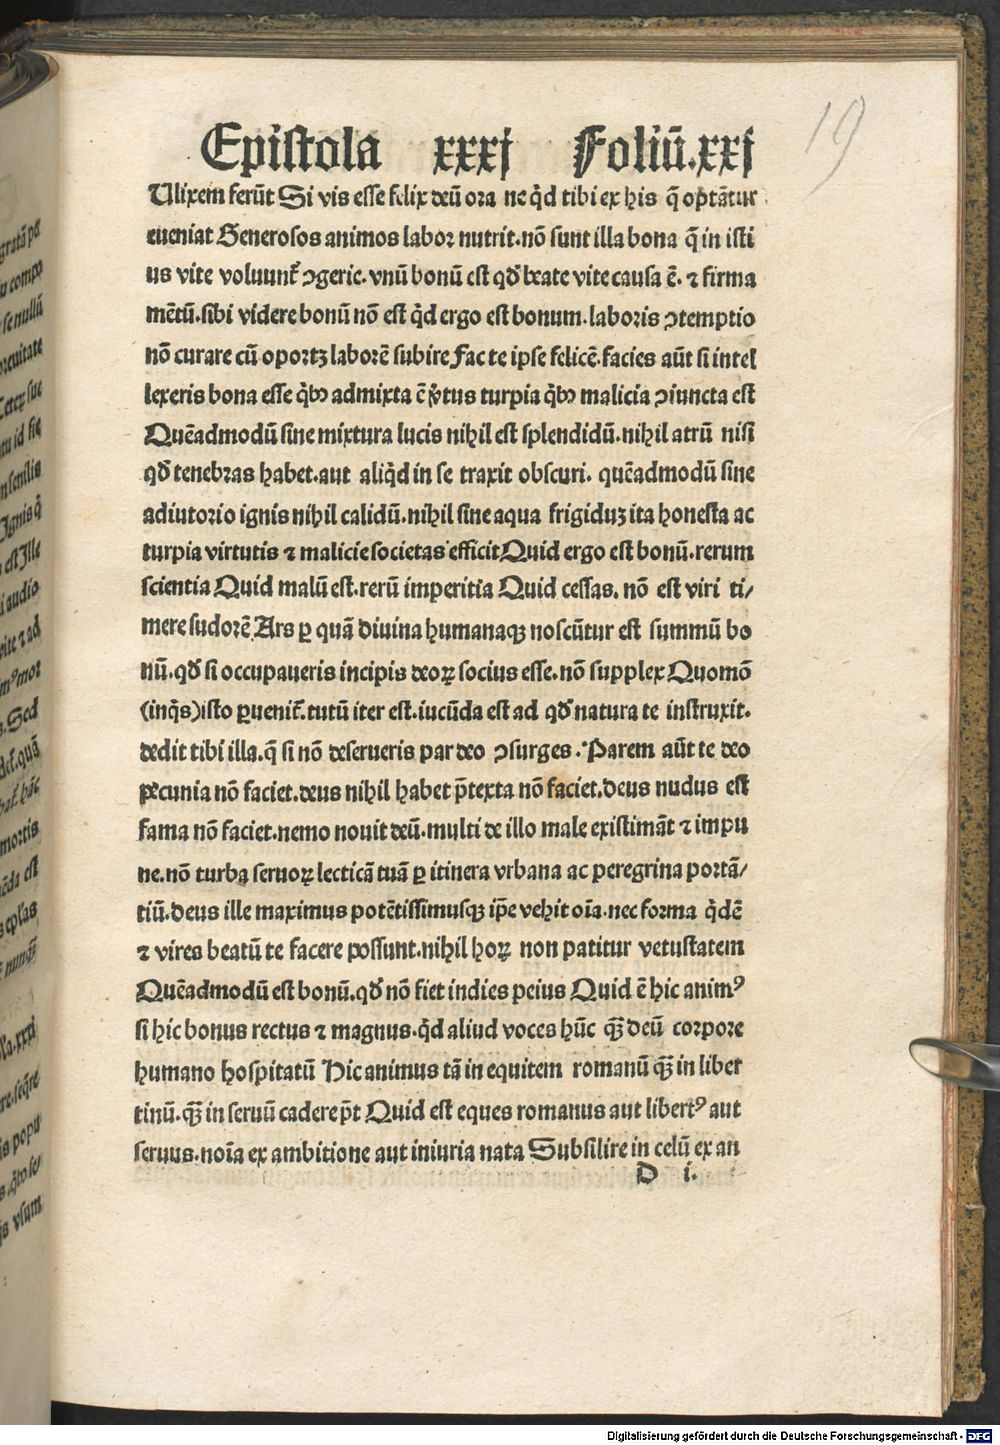 19
Epistola xxxj Foliū.xxj
Ulixem ferūt Si vis esse felix deū ora ne q̄d tibi ex his q̄ optāt̄ur
eueniat Generosos animos labor nutrit.nō sunt illa bona q̄ in isti
us vite voluunt̄ ↄgerie.vnū bonū est qd̄ beate vite causa ē.⁊ firma
mētū.sibi videre bonū nō est q̄d ergo est bonum.laboris ↄtemptio
nō curare cū oportꝫ laborē subire Fac te ipse felicē.facies aūt si intel
lexeris bona esse q̄bꝰ admixta ē v̄tus turpia q̄bꝰ malicia ↄiuncta est
Quēadmodū sine mixtura lucis nihil est splendidū.nihil atrū nisi
qd̄ tenebras habet.aut aliq̄d in se traxit obscuri. quēadmodū sine
adiutorio ignis nihil calidū.nihil sine aqua frigiduꝫ ita honesta ac
turpia virtutis ⁊ malicie societas efficit Quid ergo est bonū.rerum
scientia Quid malū est.rerū imperitia Quid cessas. nō est viri ti/
mere sudorē Ars ꝑ quā diuina humanaqꝫ noscūtur est summū bo
nū.qd̄ si occupaueris incipis deoꝝ socius esse.nō supplex Quomō
(inq̄s)isto ꝑuenit̄.tutū iter est.iucūda est ad qd̄ natura te instruxit.
dedit tibi illa.q̄ si nō deserueris par deo ↄsurges. Parem aūt te deo
pecunia nō faciet.deus nihil habet p̄texta nō faciet.deus nudus est
fama nō faciet.nemo nouit deū.multi de illo male existimāt ⁊ impu
ne.nō turba seruoꝝ lecticā tuā ꝑ itinera vrbana ac peregrina portā/
tiū.deus ille maximus potētissimusqꝫ ip̄e vehit oīa.nec forma q̄dē
⁊ vires beatū te facere possunt.nihil hoꝝ non patitur vetustatem
Quēadmodū est bonū.qd̄ nō fiet indies peius Quid ē hic animꝰ
si hic bonus rectus ⁊ magnus.q̄d aliud voces hūc qꝫ̄ deū corpore
humano hospitatū Hic animus tā in equitem romanū qꝫ̄ in liber
tinū.qꝫ̄ in seruū cadere p̄t Quid est eques romanus aut libertꝰ aut
seruus.noīa ex ambitione aut iniuria nata Subsilire in celū ex an
D i.
gratā pe
u compo
se nullū
breuitate
id sic
senilis
Ignis q̄
est Ille
i audio
vite ⁊ ad
mꝰ mor
Sed
quā
hāc
mortis
ēda est
eplas
nunqꝫ̄
la.xxxi
popu
vsum
Digitalisierung gefördert durch die Deutsche Forschungsgemeinschaft - DFG